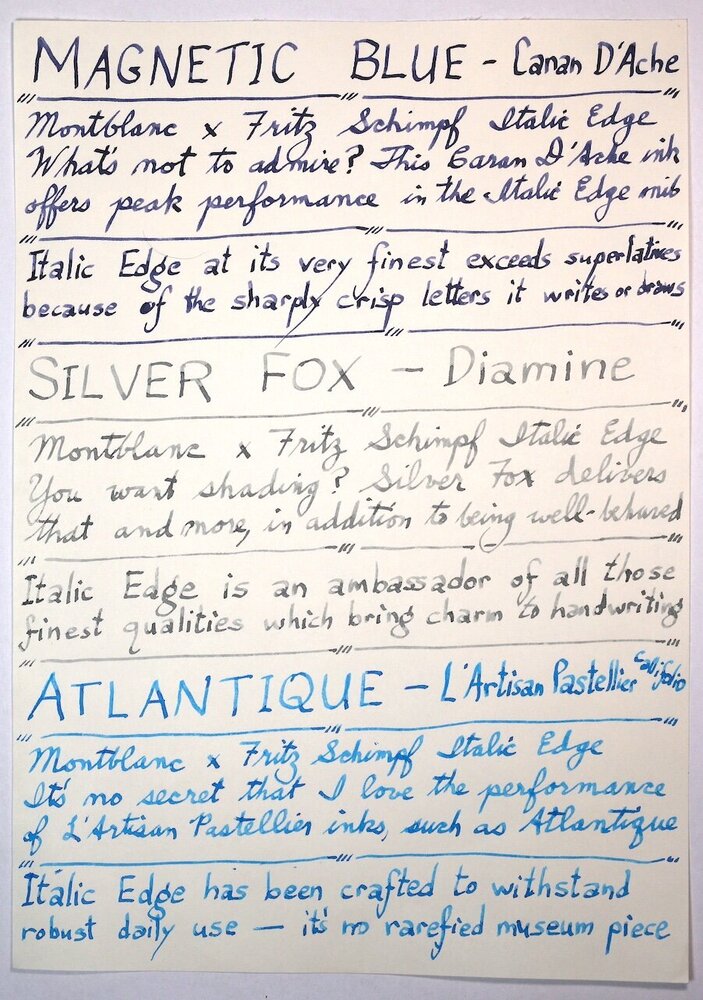 MAGNETIC BLUE - Caran D'Ache
Montblanc x Fritz Schimpf Italic Edge
What's not to admire? This Caran D'Ache ink
offers peak performance in the Italic Edge nib
Italic Edge at its very finest exceeds superlatives
because of the sharply crisp letters it writes or draws
SILVER FOX - Diamine
Montblanc x Fritz Schimpf Italic Edge
You want shading? Silver Fox delivers
that and more, in addition to being well-behaved
Italic Edge is an ambassador of all those
finest qualities which bring charm to handwriting
ATLANTIQUE - L'Artisan Pastellier Callifolio
Montblanc x Fritz Schimpf Italic Edge
It's no secret that I love the performance
of L'Artisan Pastellier inks, such as Atlantique
Italic Edge has been crafted to withstand
robust daily use — it's no rarefied museum piece